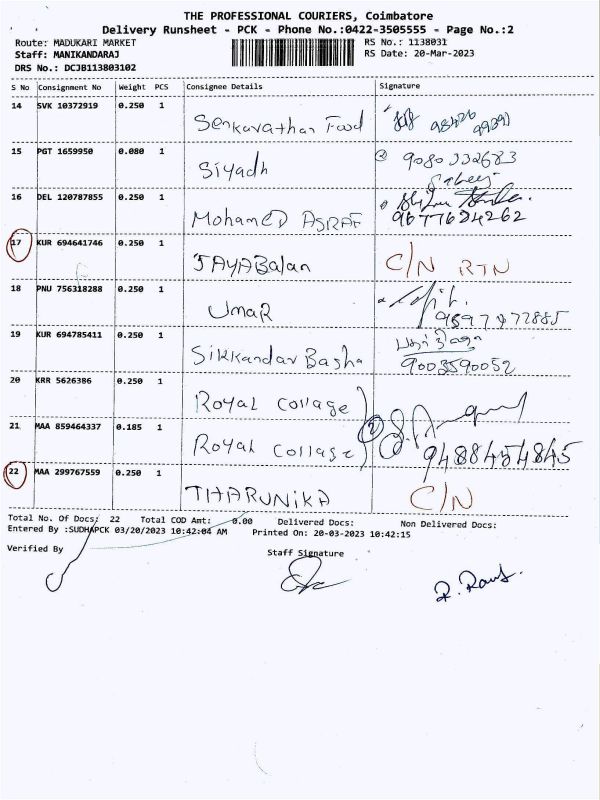 THE PROFESSIONAL COURIERS, Coimbatore
Delivery Runsheet - PCK - Phone No.:0422-3505555 - Page No.:2
Route: MADUKARI MARKET
RS No.: 1138031
Staff: MANIKANDARAJ
RS Date: 20-Mar-2023
DRS No.: DCJB113803102
S No Consignment No Weight PCS Consignee Details Signature
14 SVK 10372919 0.250 1
Senkavathan Food 98426 99391
15 PGT 1659950 0.080 1
Siyadh 9080332683
16 DEL 120787855 0.250 1
Mohamed ASRAF 9677624262
17 KUR 694641746 0.250 1
JAYABalan C/N RTN
18 PNU 756318288 0.250 1
UMAR 9597477885
19 KUR 694785411 0.250 1
Sikkandar Basha 9003590052
20 KRR 5626386 0.250 1
Royal Collage
21 MAA 859464337 0.185 1
Royal Collage 2 9488454845
22 MAA 299767559 0.250 1
THARUNIKA C/N
Total No. Of Docs: 22 Total COD Amt: 0.00 Delivered Docs: Non Delivered Docs:
Entered By :SUDHAPCK 03/20/2023 10:42:04 AM Printed On: 20-03-2023 10:42:15
Verified By Staff Signature